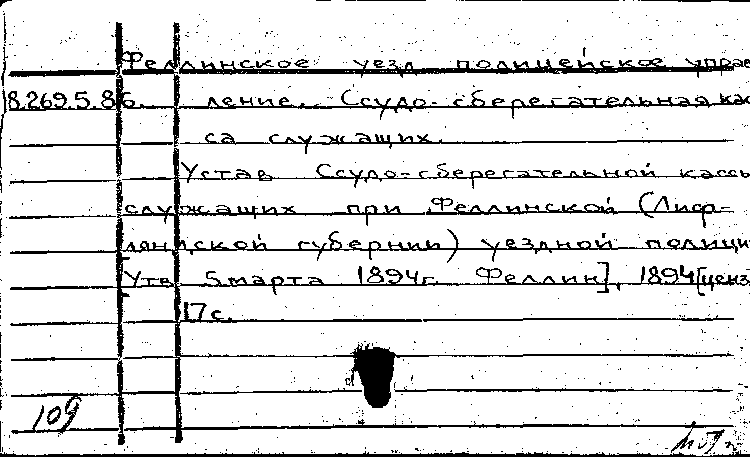 Феллинское уезд. полицейское управ
8.269.5.86. ление. Ссудо-сберегательная кас
са служащих.
Устав Ссудо-сберегательной кассы
служащих при Феллинской (Лиф-
ляндской губернии) уездной полици
[Утв. 5 марта 1894г. Феллин], 1894 [ценз
17 с.
109